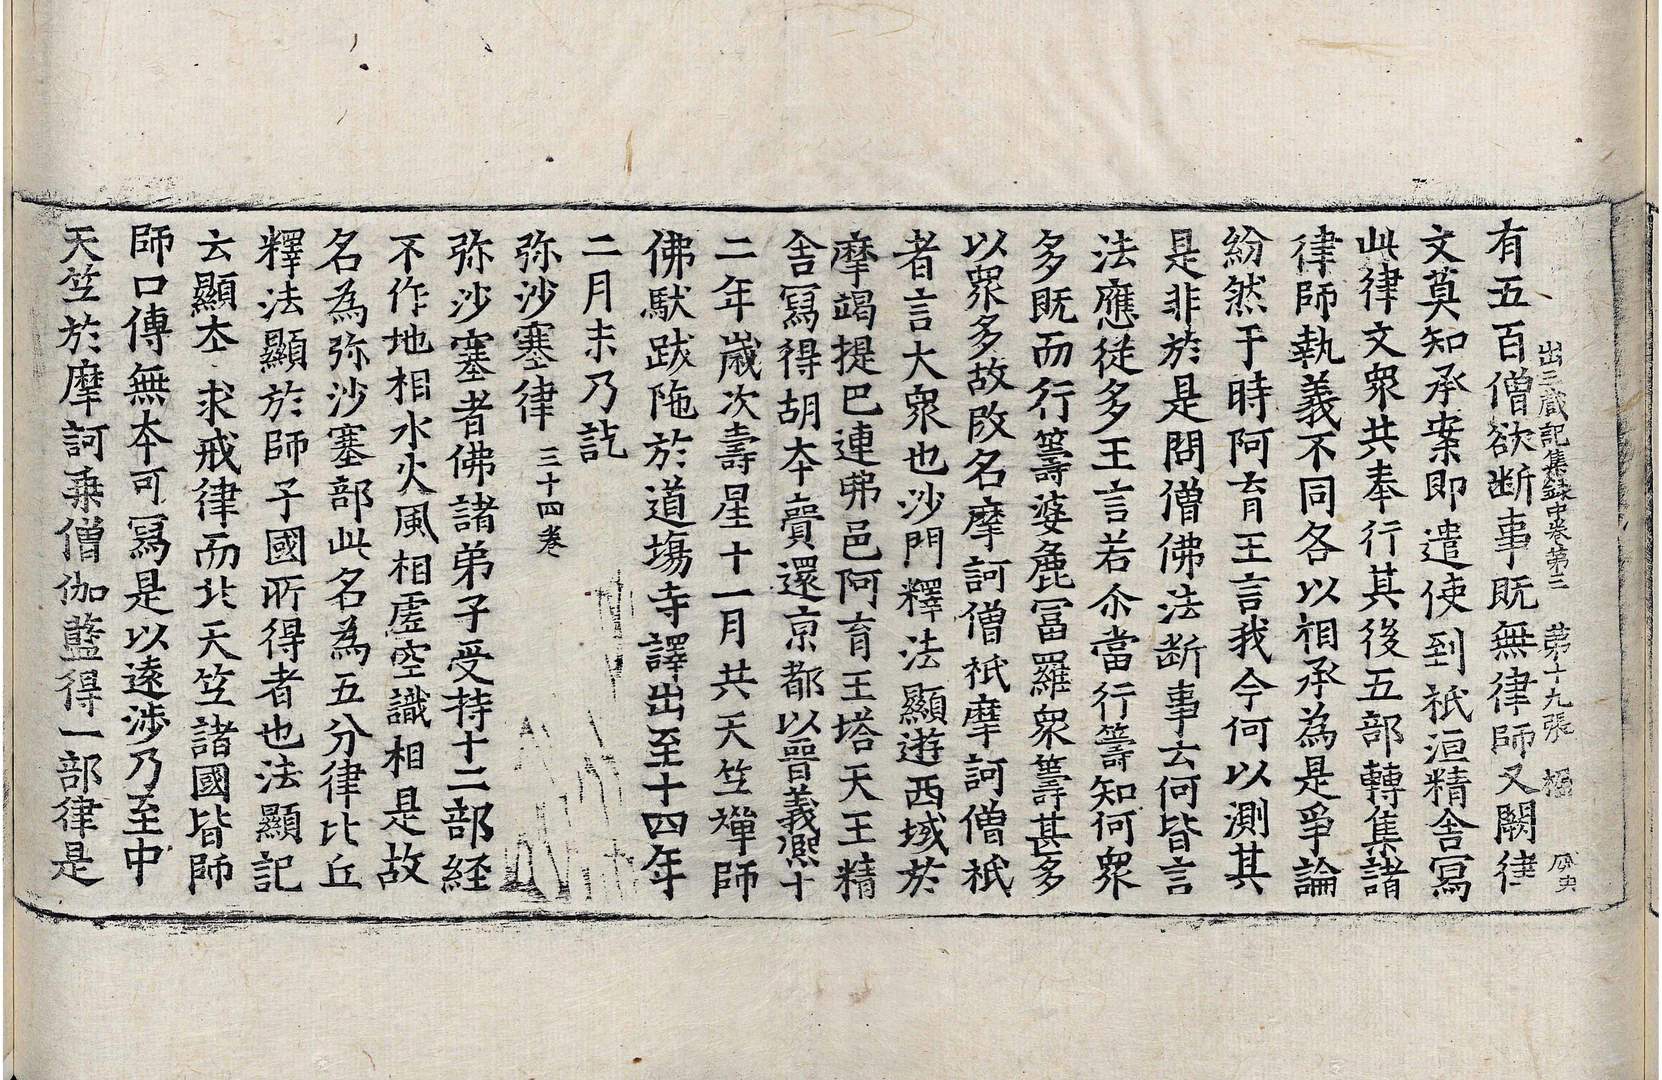 出三藏記集録中卷第三 第十九張
有五百僧欲断事既無律師又闕律
文莫知承案即遣使到祇洹精舍寫
此律文衆共奉行其後五部轉集諸
律師執義不同各以相承為是爭論
紛然于時阿育王言我今何以測其
是非於是問僧佛法断事云何皆言
法應從多王言若尒當行籌知何衆
多既而行籌婆麁冨羅衆籌甚多
以衆多故改名摩訶僧祇摩訶僧祇
者言大衆也沙門釋法顯遊西域於
摩竭提巴連弗邑阿育王塔天王精
舎寫得胡夲賫還京都以晋義熈十
二年歲次壽星十一月共天竺禪師
佛馱跋陁於道塲寺譯出至十四年
二月末乃訖
弥沙塞律 三十四卷
弥沙塞者佛諸弟子受持十二部経
不作地相水火風相虛空識相是故
名為弥沙塞部此名為五分律比丘
釋法顯於師子國所得者也法顯記
云顯夲求戒律而北天竺諸國皆師
師口傳無夲可寫是以遠涉乃至中
天竺於摩訶乗僧伽藍得一部律是